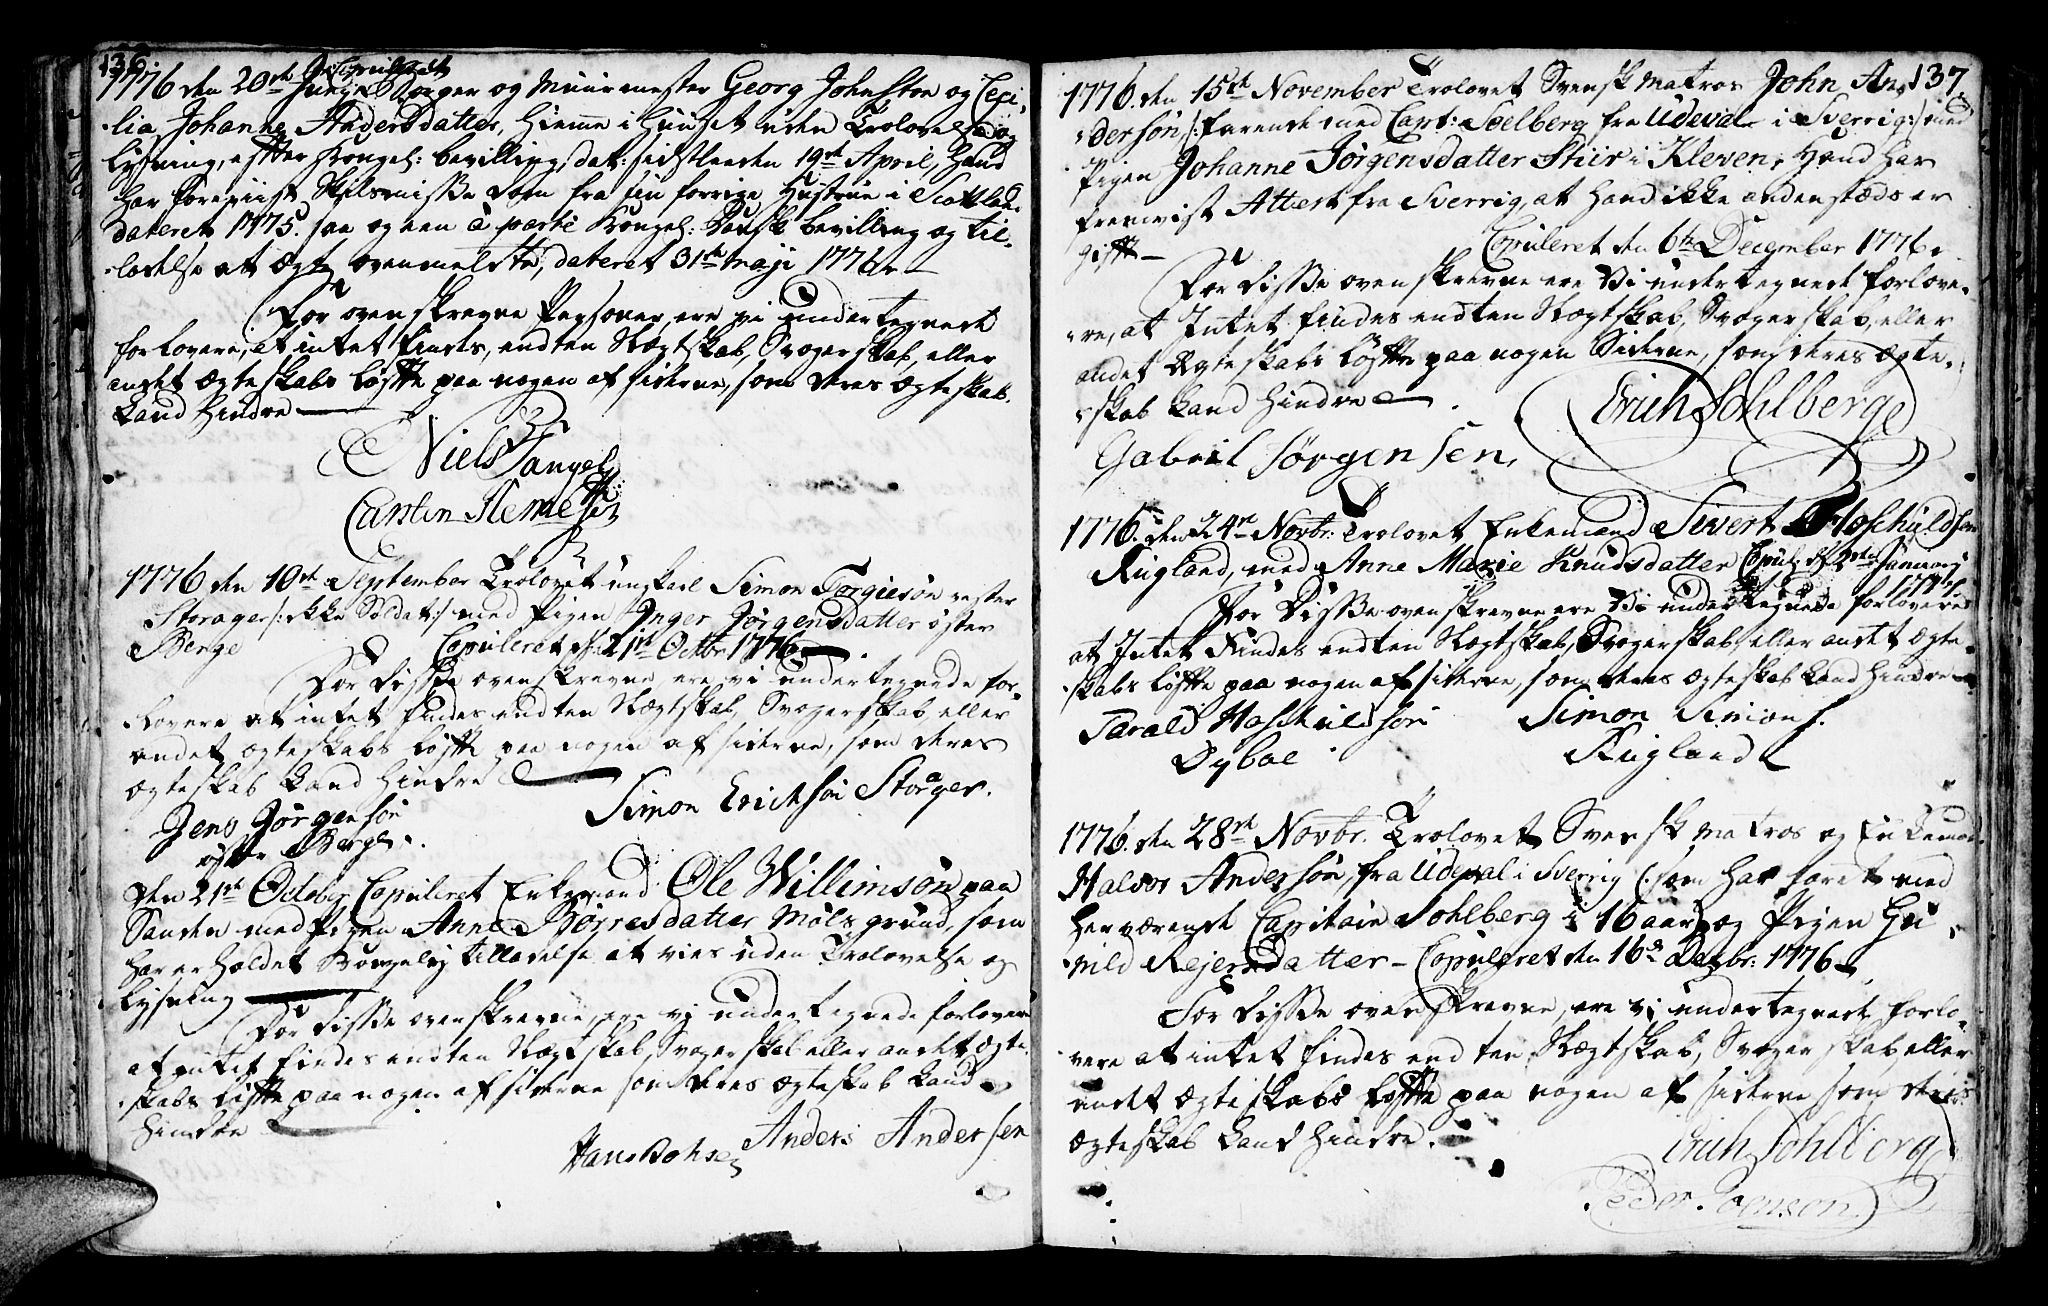 136.
Copuleret
1776 den 20de Junij Borger og Muurmester Georg Johnston og Ceci-
lia Johanne Andersdatter, hieme i Huuset uden Trolovelse og
lysning, efter Kongel: bevilling, dat: sidstleeden 19de April, Hand
har foreviist Skilsmisse Dom fra sin forrige Hustrue i Scottland
dateret 1775. saa og een à parte Kongel: Dansk bevilling og til-
ladelse at ægte ovenmelte, dateret 31te Maji 1776.
For ovenskrevne Personer, ere vi undertegnede
forlovere, at intet findes, endten Slægtskab, Svogerskab, eller
andet ægteskabs løfte paa nogen af siderne, som deres ægteskab
kand hindre
Niels Tangel
Carsten Henrichsen
1776 den 10de September Trolovet unkarl Simon Torgiersøn vester
Storager /: ikke Soldat :/ med Pigen Inger Jørgensdatter øster
Berge Copuleret d. 21de Octbr 1776
For disse ovenskrevne, ere vi undertegnede for-
lovere at intet findes endten Slægtskab, Svogerskab eller
andet ægteskabs løfte paa nogen af siderne, som deres
ægteskab kand hindre
Simon Erichsøn Storager.
Jens Jørgensøn
øster Berge.
Den 21de October Copuleret Enkemand Ole Willimsøn paa
Sanden med Pigen Anne Børresdatter Mølsgrund, som
har erholdet Kongelig tilladelse at vies uden Trolovelse og
lysning
For disse ovenskrevne, ere vi undertegnede forlovere
at intet findes endten Slægtskab, Svogerskab eller andet ægte-
skabs løfte paa nogen af siderne som deres ægteskab kand
hindre
Hans Bohsen Anders Andersen
137
1776. den 15de November Trolovet Svensk Matros John An-
dersøn /: farende med Capt: Soelberg fra Udeval i Sverrig :/ med
Pigen Johanne Jørgensdatter Stiir i Kleven, Hand har
fremvist Attest fra Sverrig, at Hand ikke andenstæds er
gift — Copuleret den 6te December 1776.
For disse ovenskrevne ere Vi undertegnede forlove-
re, at Intet findes endten Slægtskab, Svogerskab, eller
andet Ægteskabs løfte paa nogen Siderne, som deres ægte-
skab kand hindre
Erich Sohlberg
Gabriel Jørgensen,
1776. den 24de Novbr: Trolovet Enkemand Sivert Hoschuldsen
Rugland, med Anne Marie Knudsdatter Copul: d. 2den Januarij
1777.
For Disse ovenskrevne ere Vi undertegnede forlovere
at Intet Findes endten Slægtskab, Svogerskab, eller andet ægte-
skabs løfte paa nogen af siderne, som deres ægteskab kand hindre
Tarald Hoschuldsøn Simon Simons.
Dyboe Rugland
1776. den 28de Novbr. Trolovet Svensk Matros og Enkeman
Halvor Andersøn, fra Udeval i Sverrig (: som har faret med
her værende Capitain Sohlberg i 16 aar) og Pigen Gu-
nild Rejersdatter — Copuleret den 16de Decbr: 1776
For disse ovenskrevne, ere vi undertegnede forlo-
vere at intet findes endten Slægtskab, Svogerskab eller
andet ægteskabs løfte paa nogen af siderne som deres
ægteskab kand hindre.
Erich Sohlberg
Peder Joensøn